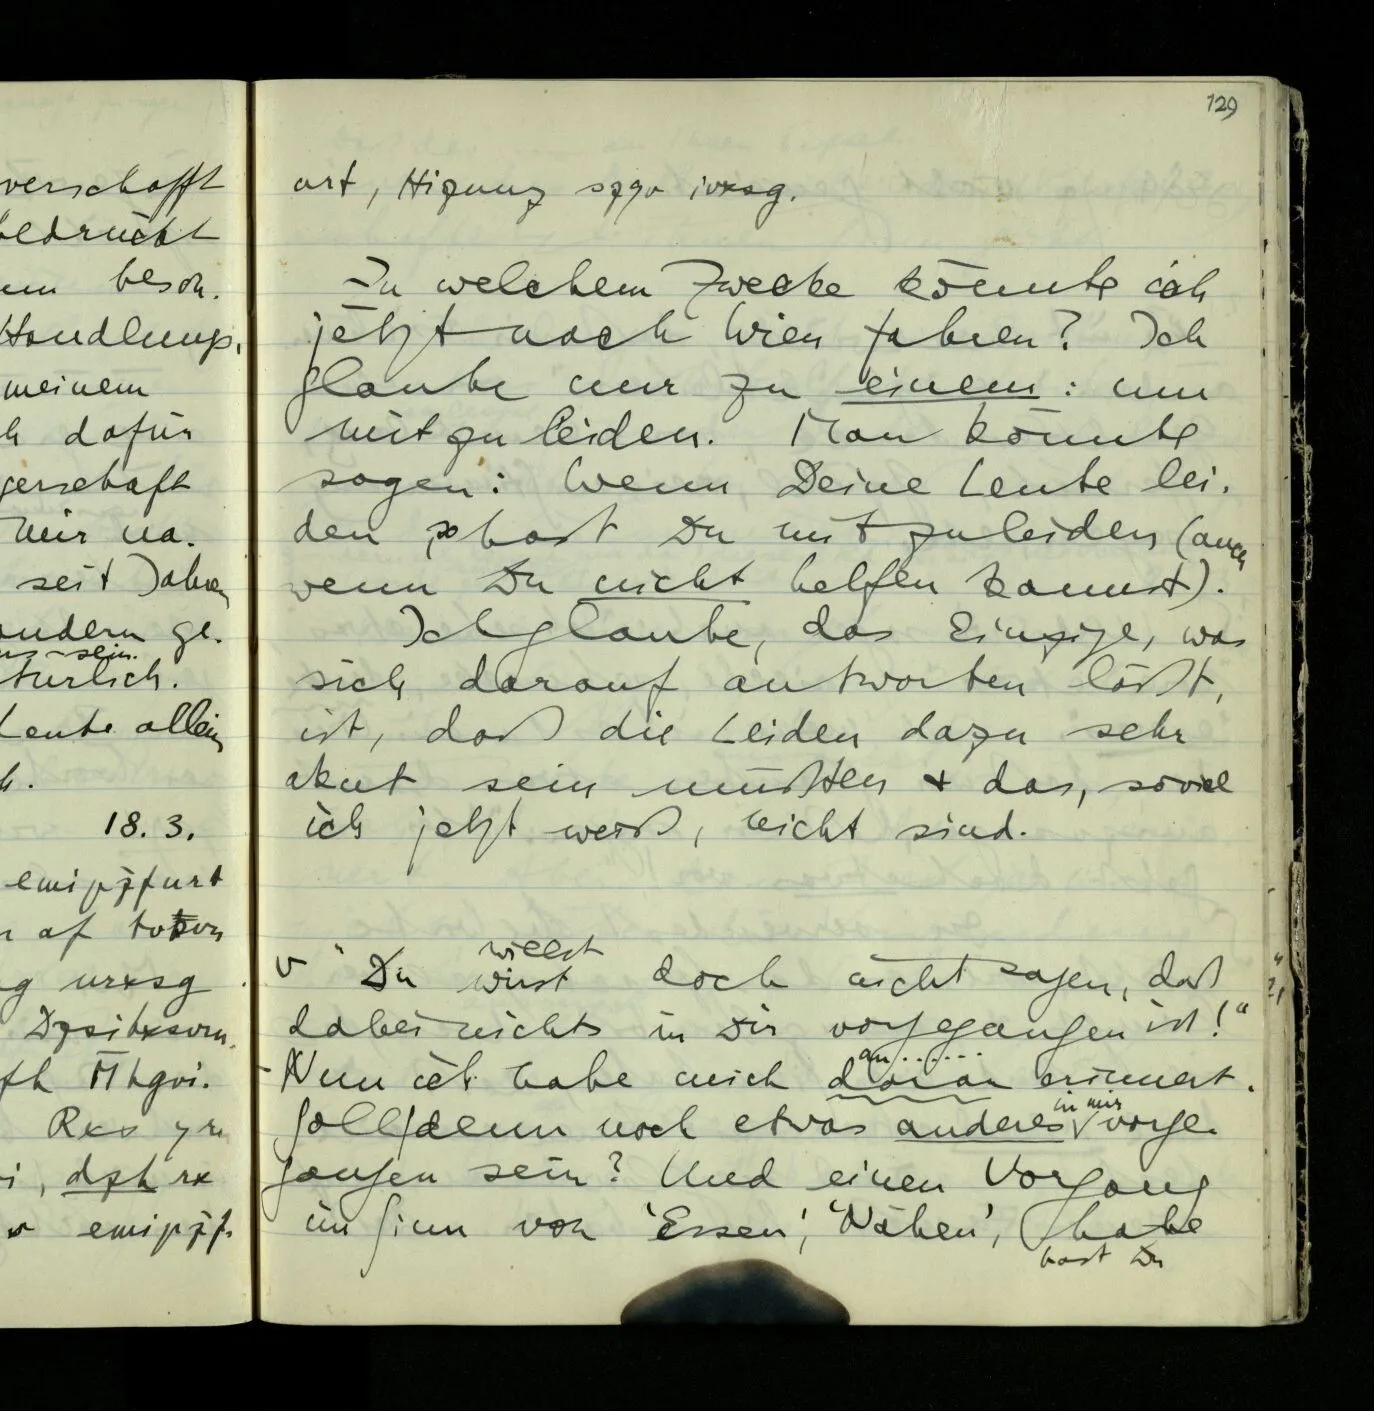 verschafft
bedrückt
um beson.
Handlung.
meinem
h dafür
gerschaft
mir na.
seit Jahren
ondern ge.
sein.
türlich.
Leute allein
h.
18. 3.
emipzfurt
af
urxsg
Rxs
, dzh rx
129
art,
Zu welchem Zwecke könnte ich
jetzt nach Wien fahren? Ich
glaube nur zu einem: um
mitzuleiden. Man könnte
sagen: Wenn Deine Leute lei-
den, hast Du mitzuleiden (auch
wenn Du nicht helfen kannst).
Ich glaube, das Einzige, was
sich darauf antworten läßt,
ist, daß die Leiden dazu sehr
akut sein müßten & das, soviel
ich jetzt weiß, nicht sind.
willst
v "Du wirst doch nicht sagen, daß
dabei nichts in Dir vorgegangen ist!"
an ......
- Nun ich habe mich daran erinnert.
in mir
Soll denn noch etwas anderes vorge-
gangen sein? Und einen Vorgang
im Sinn von 'Essen', 'Nähen', habe
hast Du